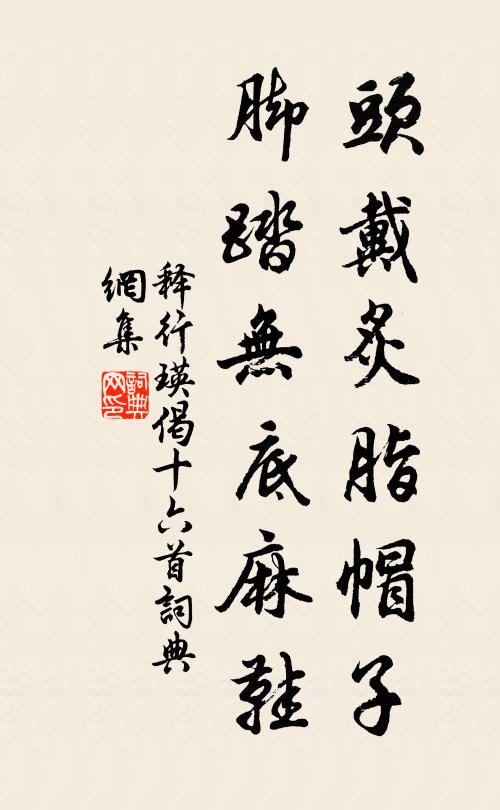 頭戴炙脂帽子
脚踏無底麻鞋
释行瑛偈十六首詞典
網集
詞典
网印